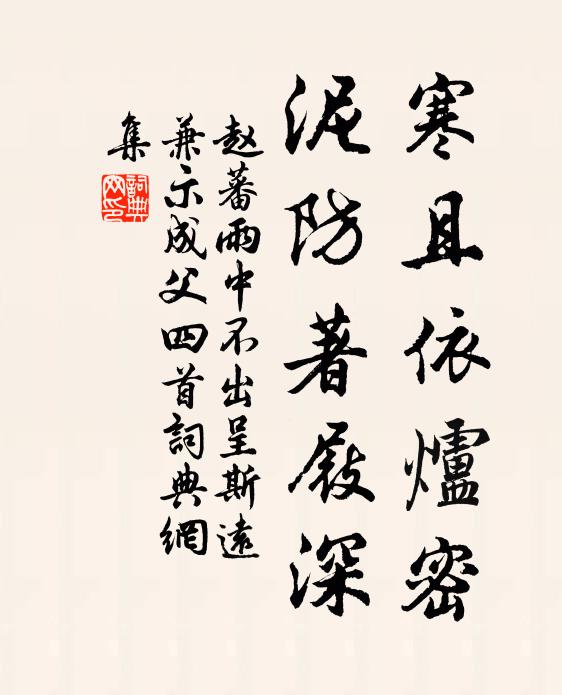 寒且依爐密
泥防著屐深
赵蕃雨中不出呈斯遠
兼示成父四首詞典網
集
詞典
网印